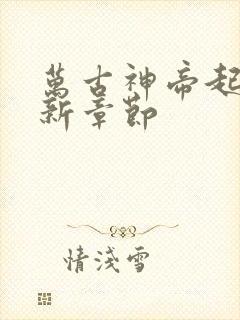 萬古神帝起
新章節
情淺雪